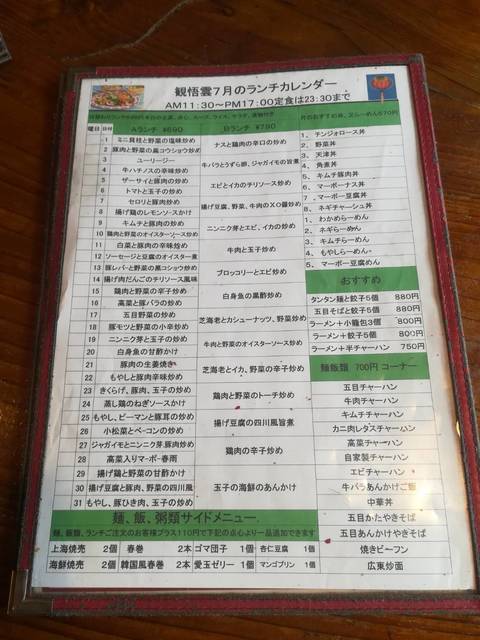 観悟雲7月のランチカレンダー
AM11:30～PM17:00定食は23:30まで
曜日 日付 Aランチ ¥690 Bランチ ¥790
1 ミニ貝柱と野菜の塩味炒め
2 豚肉と野菜の黒コショウ炒め
3 ユーリージー
4 牛ハチノスの辛味炒め
5 ザーサイと豚肉の炒め
6 トマトと玉子の炒め
7 セロリと豚肉炒め
8 揚げ鶏のレモンソースかけ
9 キムチと豚肉の炒め
10 鶏肉と野菜のオイスターソース炒め
11 白菜と豚肉の辛味炒め
12 ソーセージと豆腐のオイスター煮
13 豚レバと野菜の黒コショウ炒め
14 揚げ肉だんごのチリソース風味
15 鶏肉と野菜の辛子炒め
16 高菜と豚バラの炒め
17 五目野菜の炒め
18 豚モツと野菜の小辛炒め
19 ニンニク芽と玉子の炒め
20 白身魚の甘酢かけ
21 豚肉の生姜焼き
22 もやしと豚肉辛味炒め
23 きくらげ、豚肉、玉子の炒め
24 蒸し鶏のねぎソースかけ
25 もやし、ピーマンと豚耳の炒め
26 小松菜とベーコンの炒め
27 ジャガイモとニンニク芽、豚肉炒め
28 高菜入りマーボー春雨
29 揚げ鶏と野菜の甘酢かけ
30 揚げ豆腐と豚、野菜の四川風
31 もやし、豚ひき肉、玉子の炒め
ナスと鶏肉の辛口の炒め
牛バラとうずら卵、ジャガイモの旨煮
エビとイカのチリソース炒め
揚げ豆腐、野菜、牛肉のXO醤炒め
ニンニク芽とエビ、イカの炒め
牛肉と玉子炒め
ブロッコリーとエビ炒め
白身魚の黒酢炒め
芝海老とカシューナッツ、野菜炒め
牛肉と野菜のオイスターソース炒め
芝海老とイカ、野菜の辛子炒め
鶏肉と野菜のトーチ炒め
揚げ豆腐の四川風旨煮
鶏肉の辛子炒め
玉子の海鮮のあんかけ
1、チンジャオロース丼
2、野菜丼
3、天津丼
4、角煮丼
5、キムチ豚肉丼
6、マーボーナス丼
7、マーボー豆腐丼
8、ネギチャーシュ丼
1、わかめらーめん
2、ネギらーめん
3、キムチらーめん
4、もやしらーめん
5、マーボー豆腐めん
おすすめ
タンタン麺と餃子5個 880円
五目そばと餃子5個 880円
ラーメン+小籠包3個 800円
ラーメン+餃子5個 800円
ラーメン+半チャーハン 750円
麺飯類 700円 コーナー
五目チャーハン
牛肉チャーハン
キムチチャーハン
カニ肉レタスチャーハン
高菜チャーハン
自家製チャーハン
エビチャーハン
牛バラあんかけご飯
中華丼
五目かたやきそば
五目あんかけやきそば
焼きビーフン
広東炒面
麺、飯、粥類サイドメニュー
麺、飯類、ランチご注文のお客様プラス110円で下記の点心より一品追加できます
上海焼売 2個 春巻 2本 ゴマ団子 1個 杏仁豆腐 1個
海鮮焼売 2個 韓国風春巻 2本 愛玉ゼリー 1個 マンゴプリン 1個